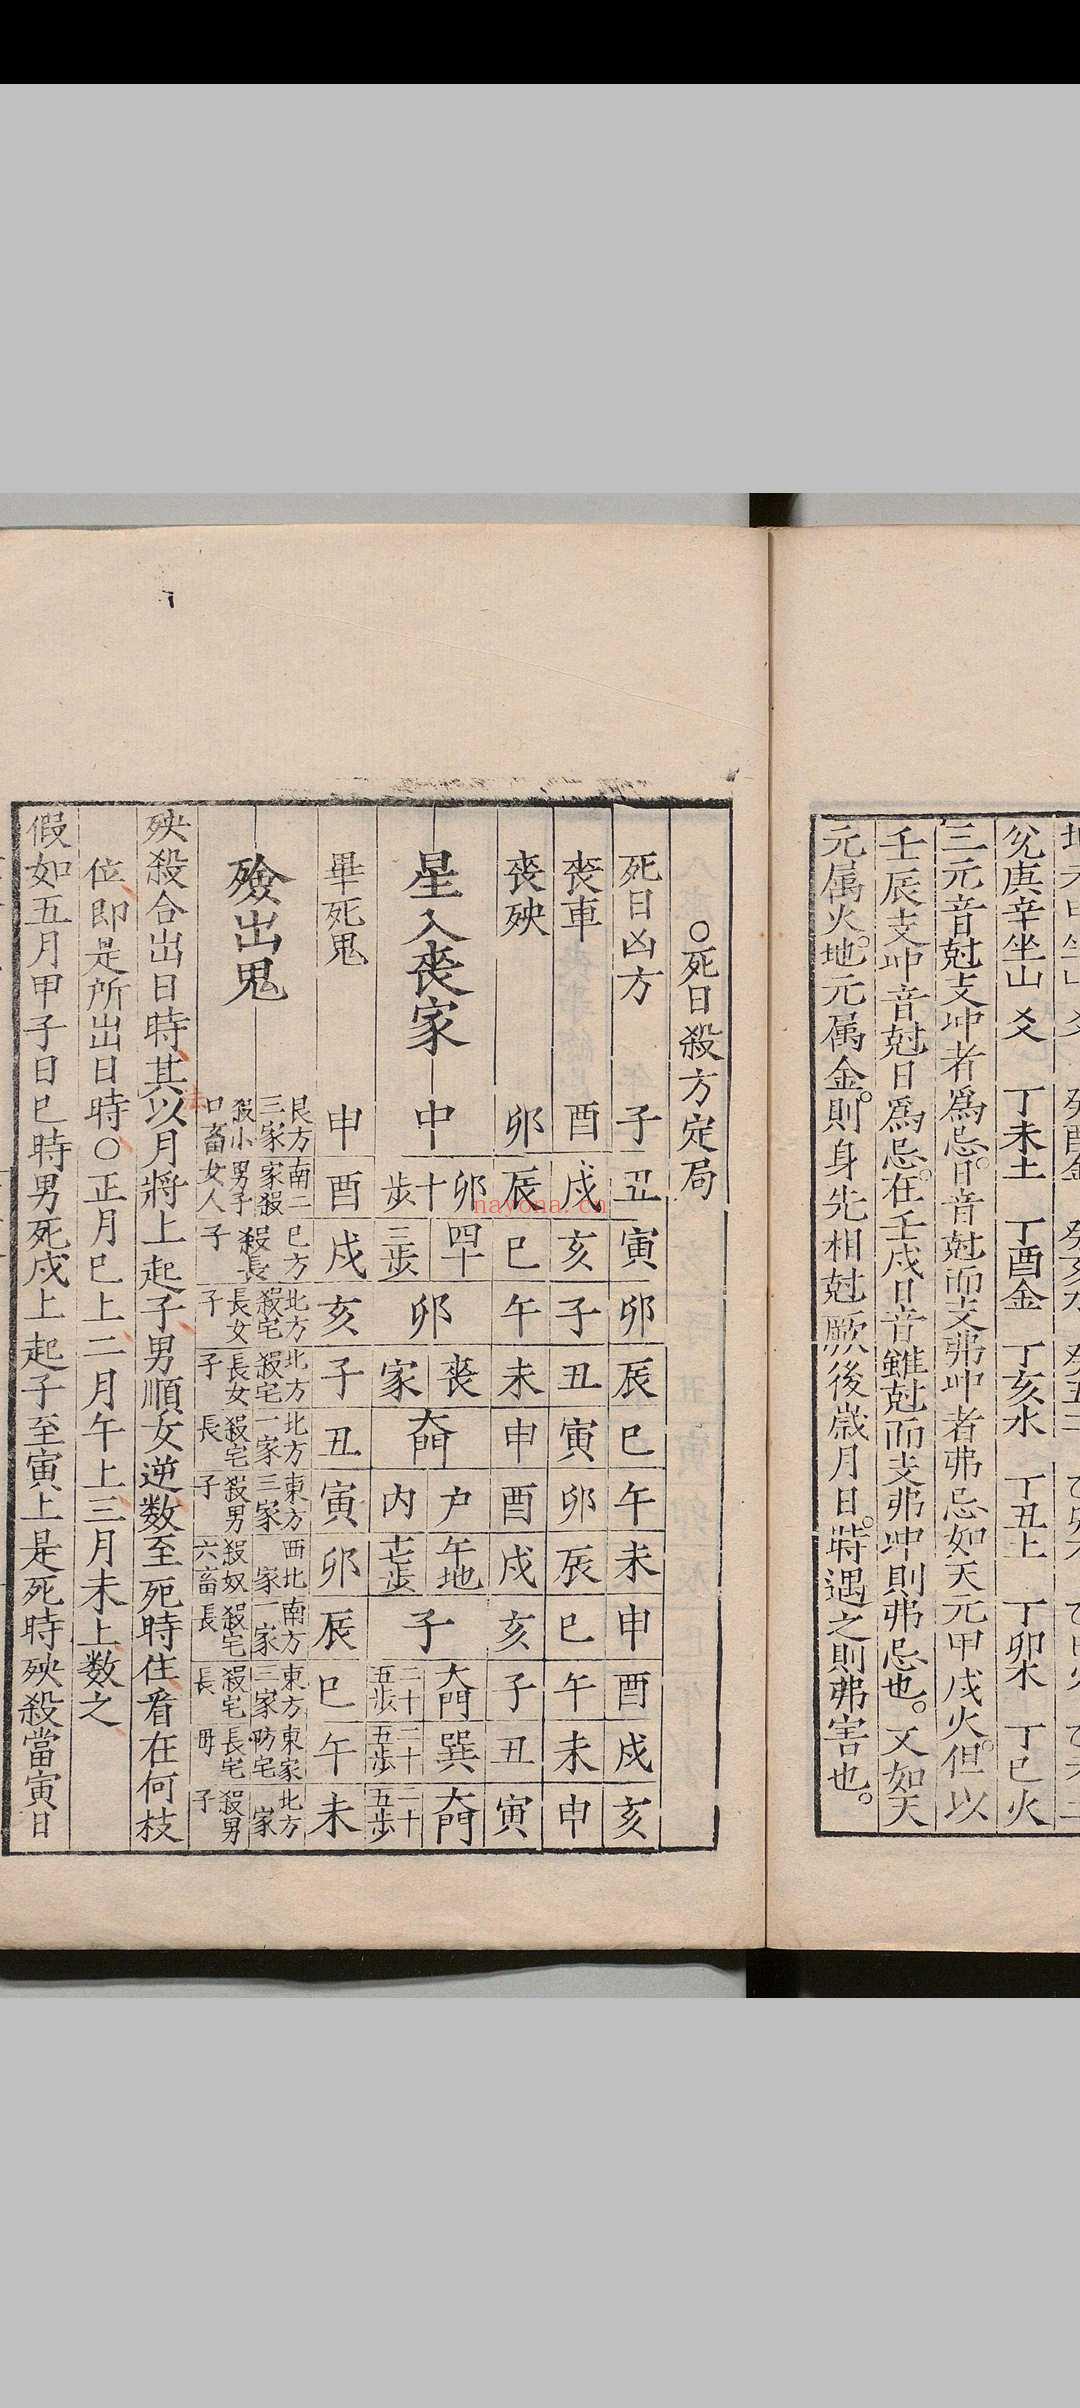 兊庚辛坐山 爻 丁未土 丁酉金 丁亥水 丁丑土 丁卯木 丁巳火
三元音尅支冲者爲忌日音尅而支弗冲者弗忌如天元甲戌火但以
壬辰支冲音尅日爲忌在壬戌日音雖尅而支弗冲則弗忌也又如天
元属火地元属金則身先相尅厥後歲月日時遇之則弗害也
○死日殺方定局
死日凶方 子 丑 寅 卯 辰 巳 午 未 申 酉 戌 亥
喪車 酉 戌 亥 子 丑 寅 卯 辰 巳 午 未 申
喪殃 卯 辰 巳 午 未 申 酉 戌 亥 子 丑 寅
星入喪家 中 卯十步 四十二步 卯 喪家 大門 户内 午地 子 大門二十五步 巽二十五步 大門二十五步
畢死鬼 申 酉 戌 亥 子 丑 寅 卯 辰 巳 午 未
殮出鬼
艮方三家殺小口畜
南二家家殺男子女人
巳方殺長子
北方殺宅長女子
北方殺宅長女子
北方一家殺宅長
東方三家殺男子
西北一家殺奴六畜
南方一家殺宅長
東方三家殺宅長
東家防宅長宅母
北方一家殺男子
殃殺合出日時其法以月將上起子男順女逆数至死時住看在何枝
位即是所出日時○正月巳上二月午上三月未上数之
假如五月甲子日巳時男死戌上起子至寅上是死時殃殺當寅日
nayona.cn